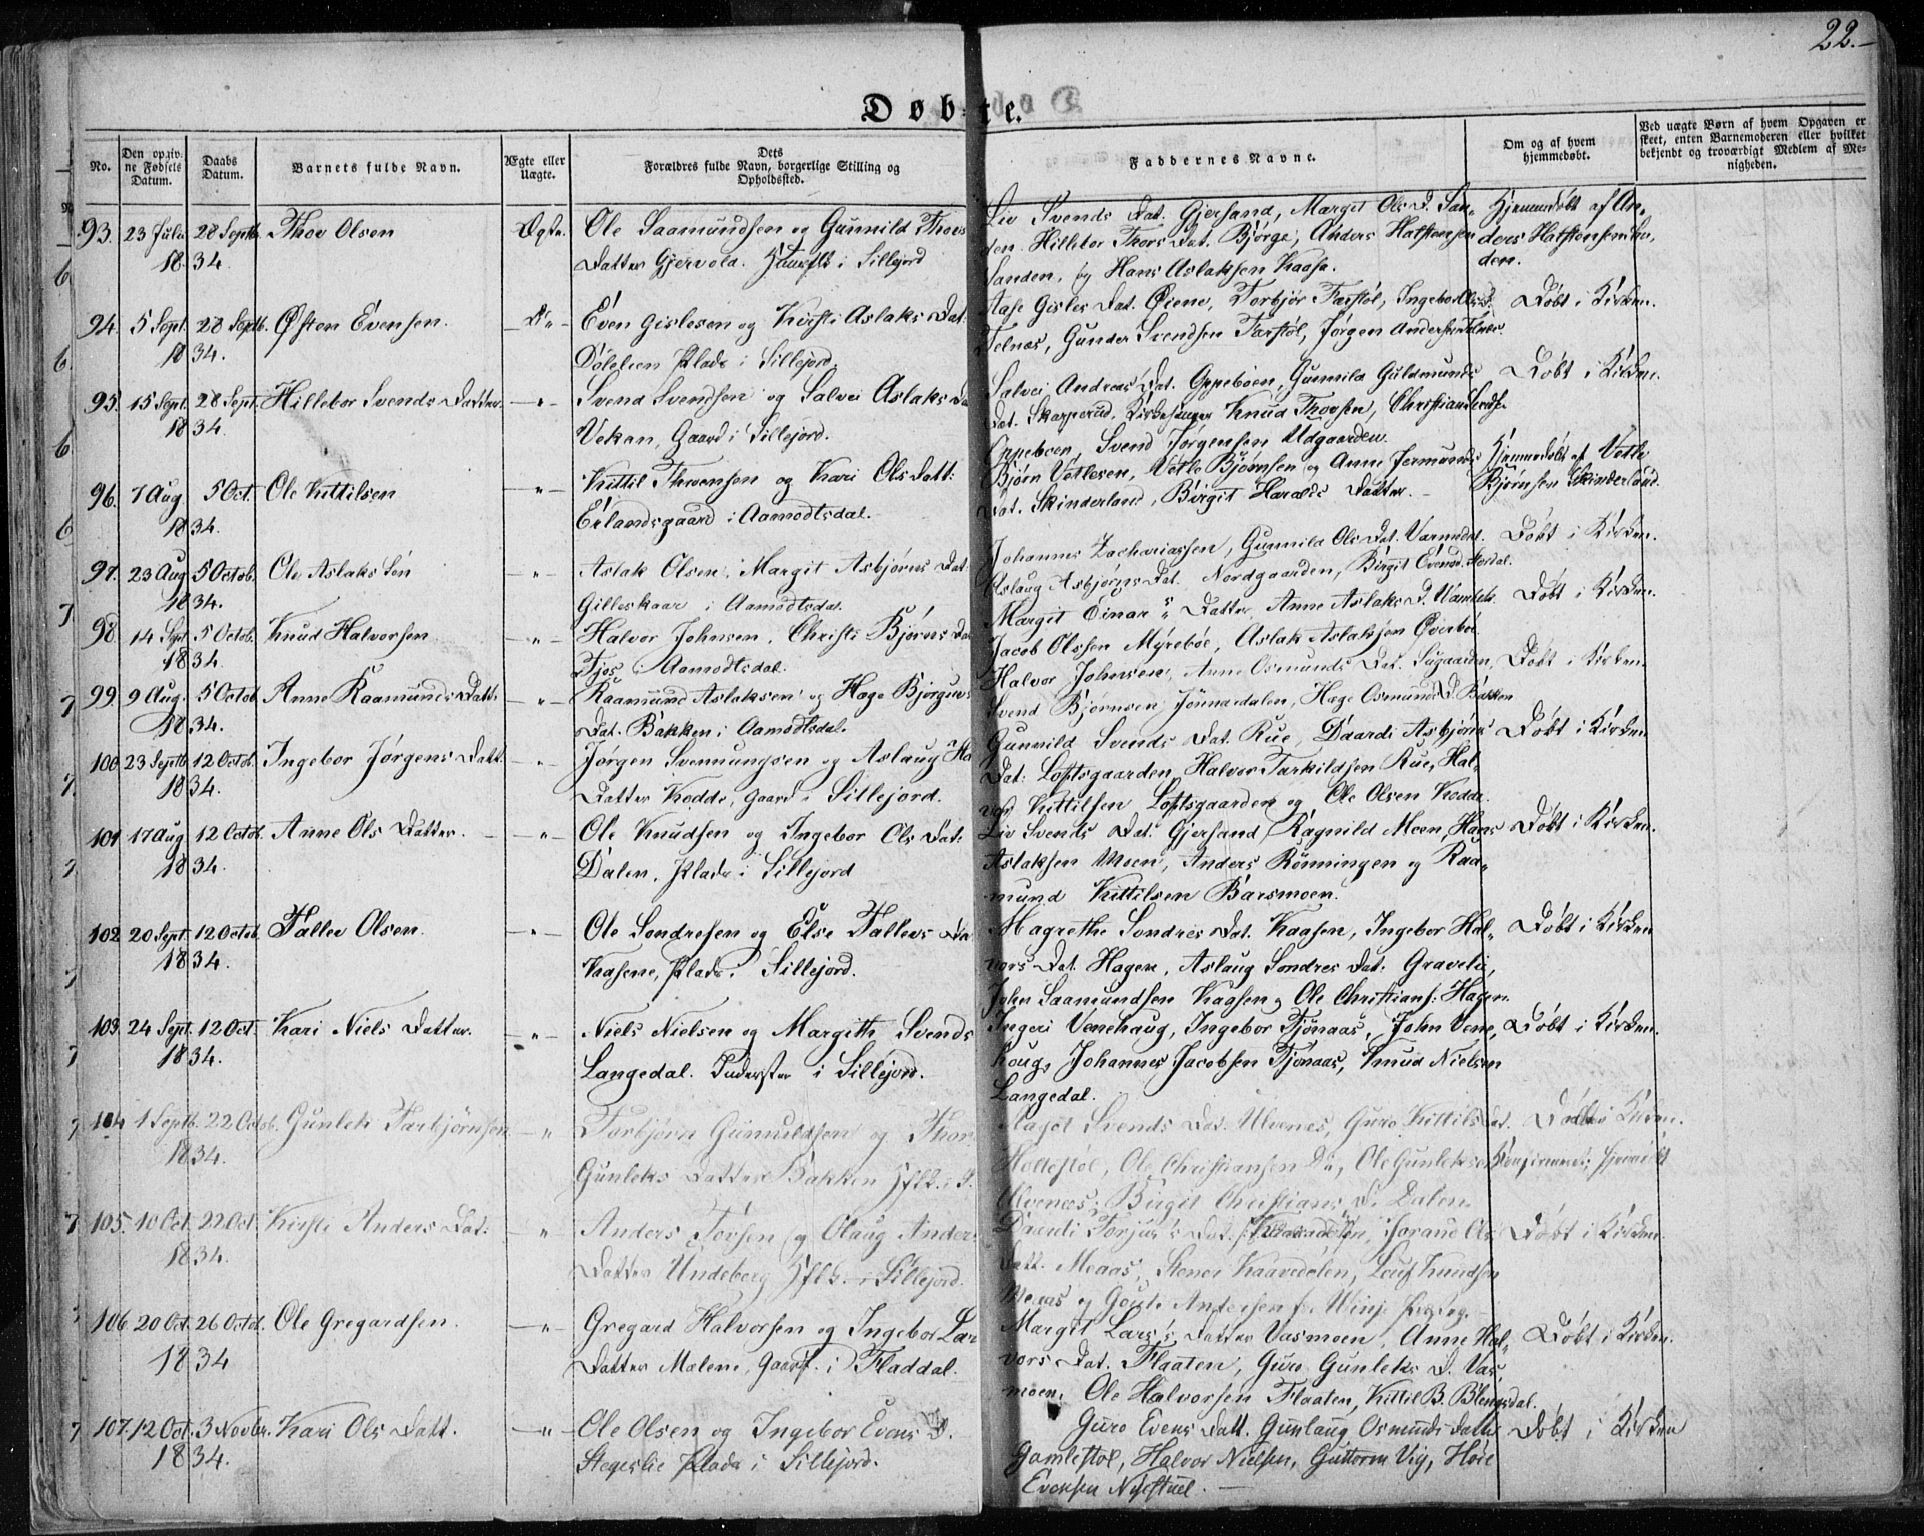 22.
Døbte.
No.
Den opgiv-
ne Fødsels
Datum.
Daabs
Datum.
Barnets fulde Navn.
Ægte eller
Uægte.
Dets
Forældres fulde Navn, borgerlige Stilling og
Opholdssted.
Faddernes Navne.
Om og af hvem
hjemmedøbt.
Ved uægte Børn af hvem Opgaven er
skeet, enten Barnemoderen eller hvilket
bekjendt og troværdigt Medlem af Me-
nigheden.
93. 23 Julii 28 Septb. Thov Olsen Ægte. Ole Saamundsen og Gunnild Thovs Liv Svends Dat. Gjersand, Margit Ols D. San- Hjemmedøbt af An-
1834. Datter Gjervola. Huusfk i Sillejord den. Hillebor Thors Dat. Bjørge, Anders Halstensen ders Halstensen San-
Sanden, og Hans Aslaksen Kaasa. den.
94. 5 Sept. 28 Septb. Østen Evensen. Do Even Gislesen og Kirsti Aslaks Dat. Aase Gisles Dat. Øiene, Torbjør Farstøl, Ingebor Ols D. Døbt i Kirken.
1834. Plads i Sillejord. Telnes, Gunder Svendsen Farstøl, Jørgen Andersen Telnes.
95. 15 Sept. 28 Sept. Hillebor Svends Datter. " Svend Svendsen og Salvei Aslaks Da Salvei Andreas Dat. Oppebøen, Gunnild Guldmunds Døbt i Kirken.
1834. Vekan, Gaard i Sillejord. Dat. Skarperud, Kirkesanger Knud Thovsen, Christian
Oppeboen, Svend Jørgensen Udgaarden.
96. 7 Aug 5 Oct. Ole Kittilsen " Kittil Thovensen og Kari Ols Datt: Bjørn Vetlesen, Vetle Bjørnsen og Anne Jermunds Hjemmedøbt af Vetle
1834. Erlandsgaard i Aamodtsdal. Dat. Skinderland, Birgit Haralds Datter. Bjørnsen Skinderland.
97. 23 Aug 5 Octob. Ole Aslaks Søn " Aslak Olsen, Margit Asbjørns Dat Johannes Zachariassen, Gunnild Ols Dat. Døbt i Kirken.
1834. Gilleskaar i Aamodtsdal. Aslaug Asbjørns Dat. Nordgaarden, Birgit
98 14 Sept 5 Octob. Knud Halvorsen " Halvor Johnsen, Christi Bjørns Da Margit Einar's Datter, Anne Aslaks D. Døbt i Kirken.
1834. Fjos i Aamodtsdal. Jacob Olssen Myrebøe, Aslak Aslaksen Øverbøe.
99. 9 Aug. 5 Octob Anne Raamunds Datt. " Raamund Aslaksen og Hage Bjørguvs Halvor Johnsen, Anne Osmunds Dat. Døbt i Kirken.
1834. Dat. Bakken i Aamodtsdal. Svend Bjørnsen Hage Osmunds D. Bakken
100 23 Septb 12 Octob. Ingebor Jørgens Datt. " Jørgen Svennungsen og Aslaug Ha Gunnild Svends Dat. Rue, Daardi Asbjørns Døbt i Kirken
1834. Datter Kodde, Gaard i Sillejord. Dat: Loftsgaarden, Halvor Tarkildsen Rue, Hal-
vor Kittilsen Loftsgaarden og Ole Olsen Kodde.
101 17 Aug 12 Octob. Anne Ols Datter. " Ole Knudsen og Ingebor Ols Dat: Liv Svends Dat. Gjersand, Ragnild Moen, Hans Døbt i Kirken.
1834. Dalen, Plads i Sillejord Aslaksen Moen, Anders Rönningen og Raa-
mund Kittilsen Barsmoen.
102 20 Sept. 12 Octob. Fallev Olsen. " Ole Sondresen og Else Fallevs Da Magrethe Sondres Dat. Kaasen, Ingebor Hal- Døbt i Kirken
1834. Kasene, Plads i Sillejord. vors Dat. Hagen, Aslaug Sondres Dat: Gravelie,
John Saamundsen Kaasen, Ole Christians: Hagen.
103. 24 Sept. 12 Oct. Kari Niels Datter. " Niels Nielsen og Margith Svends Ingeri Venehaug, Ingebor Fjönaas, John Vene, Døbt i Kirken.
1834. Langedal. Inderster i Sillejord. houg, Johannes Jacobsen Fjönaas, Knud Nielsen
Langedal.
104 1 Septb. 22 Octob. Gunlek Tarbjørnsen " Torbjørn Gunnuldsen og Thor Aaset Svends Dat. Ulvenes, Guro Kittils Dat. Døbt i Kirken.
1834. Gunleks Datter Bakken Hfk. i S. Holtestøl, Ole Christiansen Do, Ole Gunleksen
Ulvenes, Birgit Christians D. Dalen.
105. 10 Oct. 22 Oct. Kirsti Anders Dat: " Anders Torsen og Olaug Anders Daardi Torjus's Dat. Jorand Ols Døbt i Kirken.
1834. Datter Undeberg Hfk. i Sillejord. Datt. Meaas, Stener Kaavedalen, Leif Knudsen
Meaas og Gouti Andersen fr Winje Præstg.
106 20 Oct. 26 Octob. Ole Gregardsen. " Gregard Halvorsen og Ingebor Lar Margit Lars's Datter Vasmoen, Anne Hal- Døbt i Kirken.
1834 Datter Malene, Gaard i Fladdal. vors Dat. Flaaten, Guro Gunleks D. Vas-
moen, Ole Halvorsen Flaaten, Kittil B. Blengsdal.
107. 12 Oct. 3 Novbr. Kari Ols Datt. " Ole Olsen og Ingebor Evens D. Guro Evens Datt. Gunlaug Osmunds Datter Døbt i Kirken
1834. Stegeslie Plads i Sillejord. Gamlestøl, Halvor Nielsen, Guttorm Vig, Høie
Evensen Nystuel.